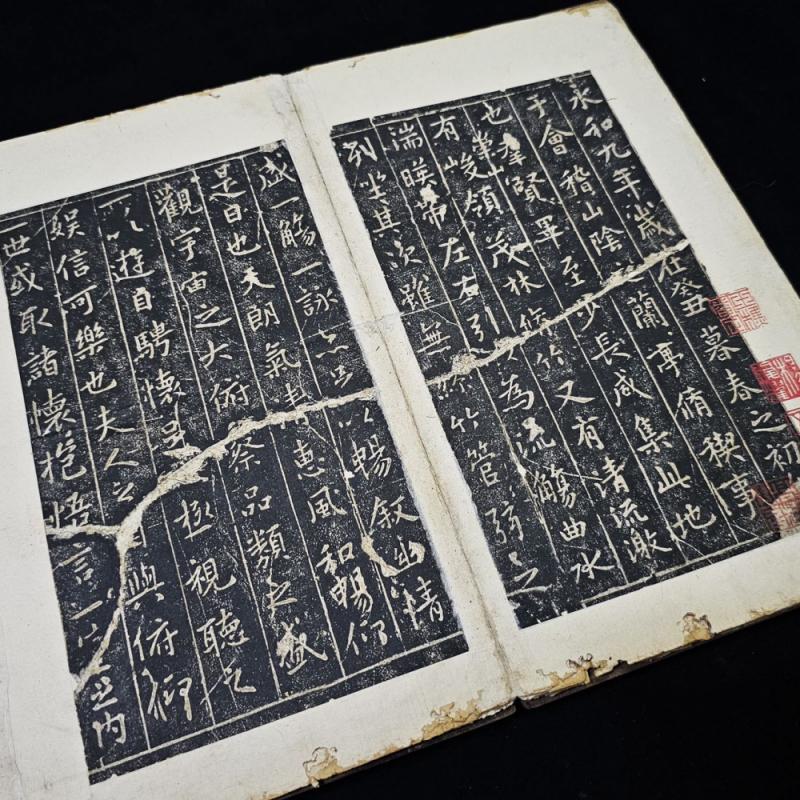 永和九年歲在癸丑暮春之初
于會稽山陰之蘭亭脩禊事
也羣賢畢至少長咸集此地
有峻領茂林脩竹又有清流激
湍暎帶左右引以為流觴曲水
列坐其次雖無絲竹管弦之
盛一觴一詠亦足以暢敘幽情
是日也天朗氣清惠風和暢仰
觀宇宙之大俯察品類之盛
以遊目騁懷足極視聽之
娛信可樂也夫人之與俯仰
一世或取諸懷抱悟言一室之內